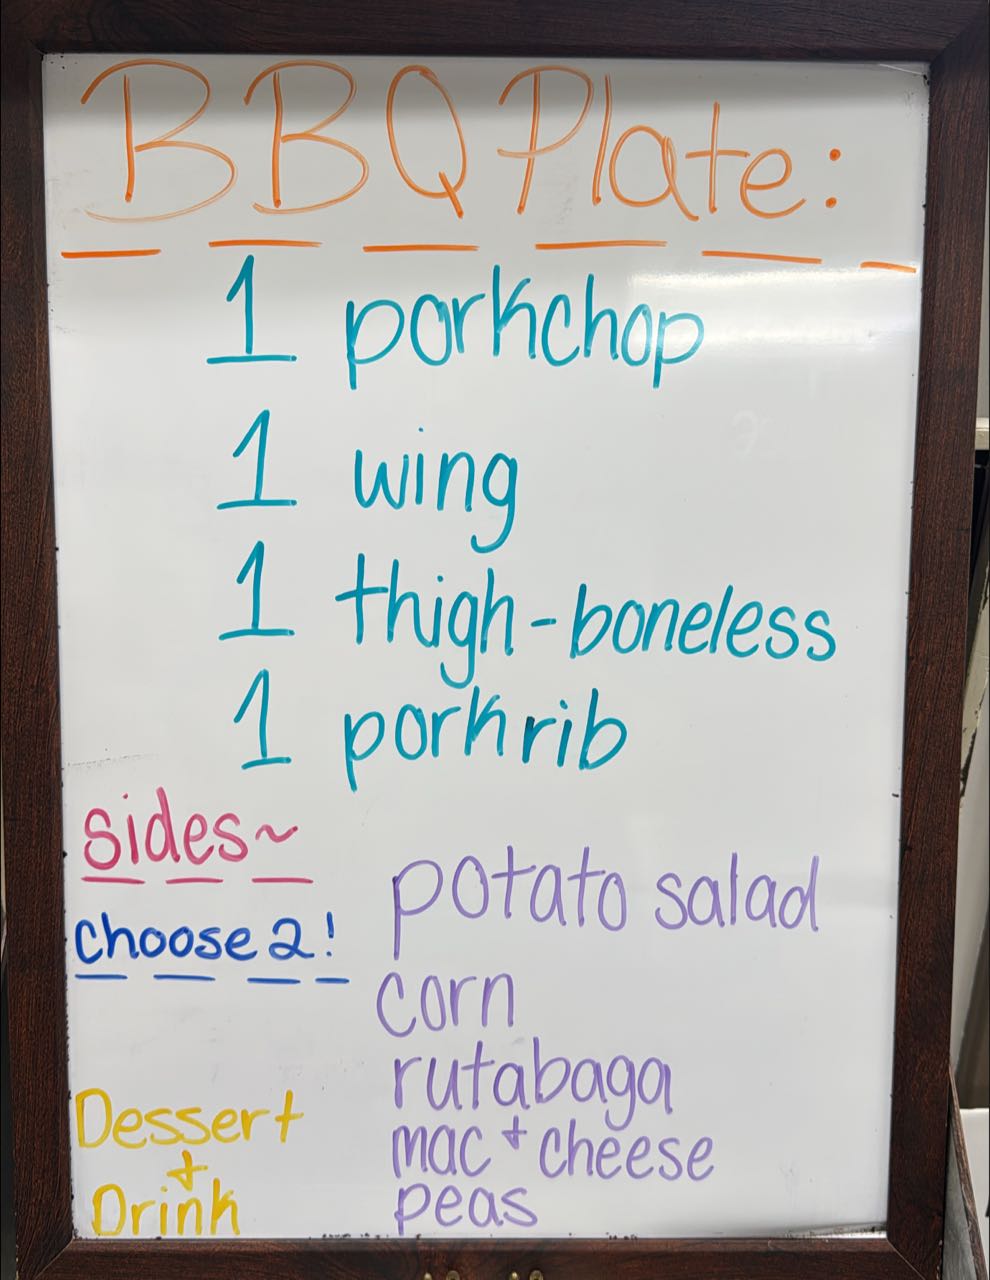 BBQ Plate:
1 porkchop
1 wing
1 thigh-boneless
1 pork rib
sides~
choose 2!
potato salad
corn
rutabaga
mac + cheese
peas
Dessert
+
Drink